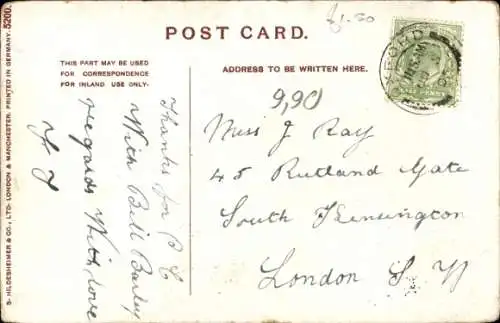 POST CARD.
THIS PART MAY BE USED
FOR CORRESPONDENCE
FOR INLAND USE ONLY.
ADDRESS TO BE WRITTEN HERE.
£1.50
9,90
Thanks for P C
With Bill Barley
regards With love
Miss J Ray
45 Rutland Gate
South Kensington
London S. W
S. HILDESHEIMER & CO., LTD. LONDON & MANCHESTER. PRINTED IN GERMANY. 5200.